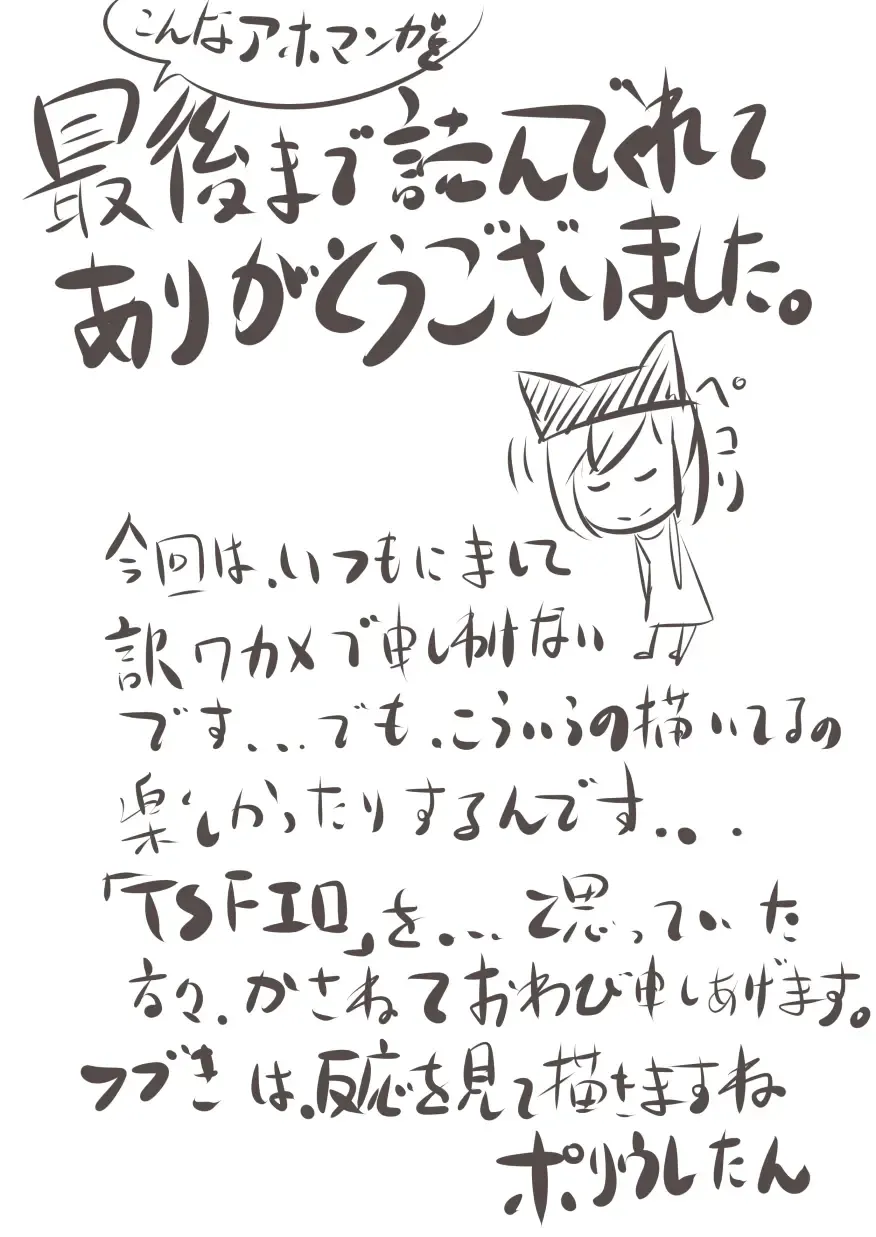 こんなアホマンガを
最後まで読んでくれて
ありがとうございました。
ペコリ
今回は、いつもにまして
訳ワカメで申しわけない
です...でも、こういうの描いてるの
楽しかったりするんです...
「TSFエロ」を...と思っていた
方々、かさねておわび申しあげます。
つづきは、反応を見て描きますね
ポリウレたん